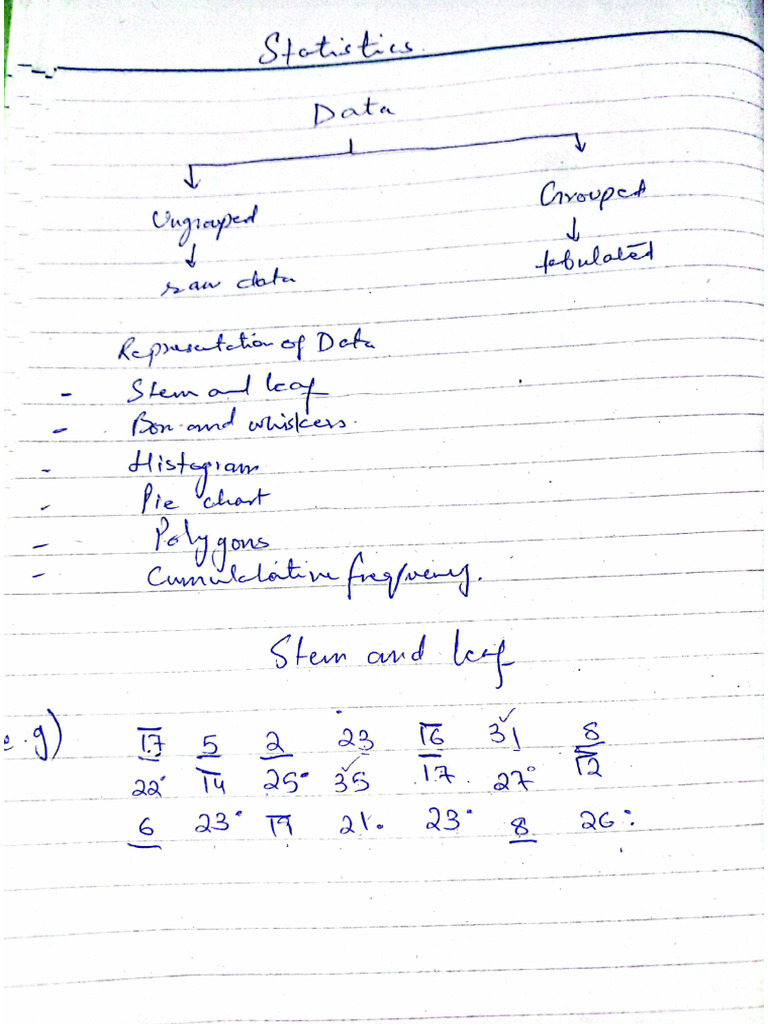 Statistics.
Data
Ungrouped Grouped
raw data tabulated
Representation of Data
- Stem and leaf
- Box and whiskers.
- Histogram
- Pie chart
- Polygons
- Cumulative frequency.
Stem and leaf
e.g) 17 5 2 23 16 31 8
22 14 25 35 17 27 12
6 23 19 21 23 8 26